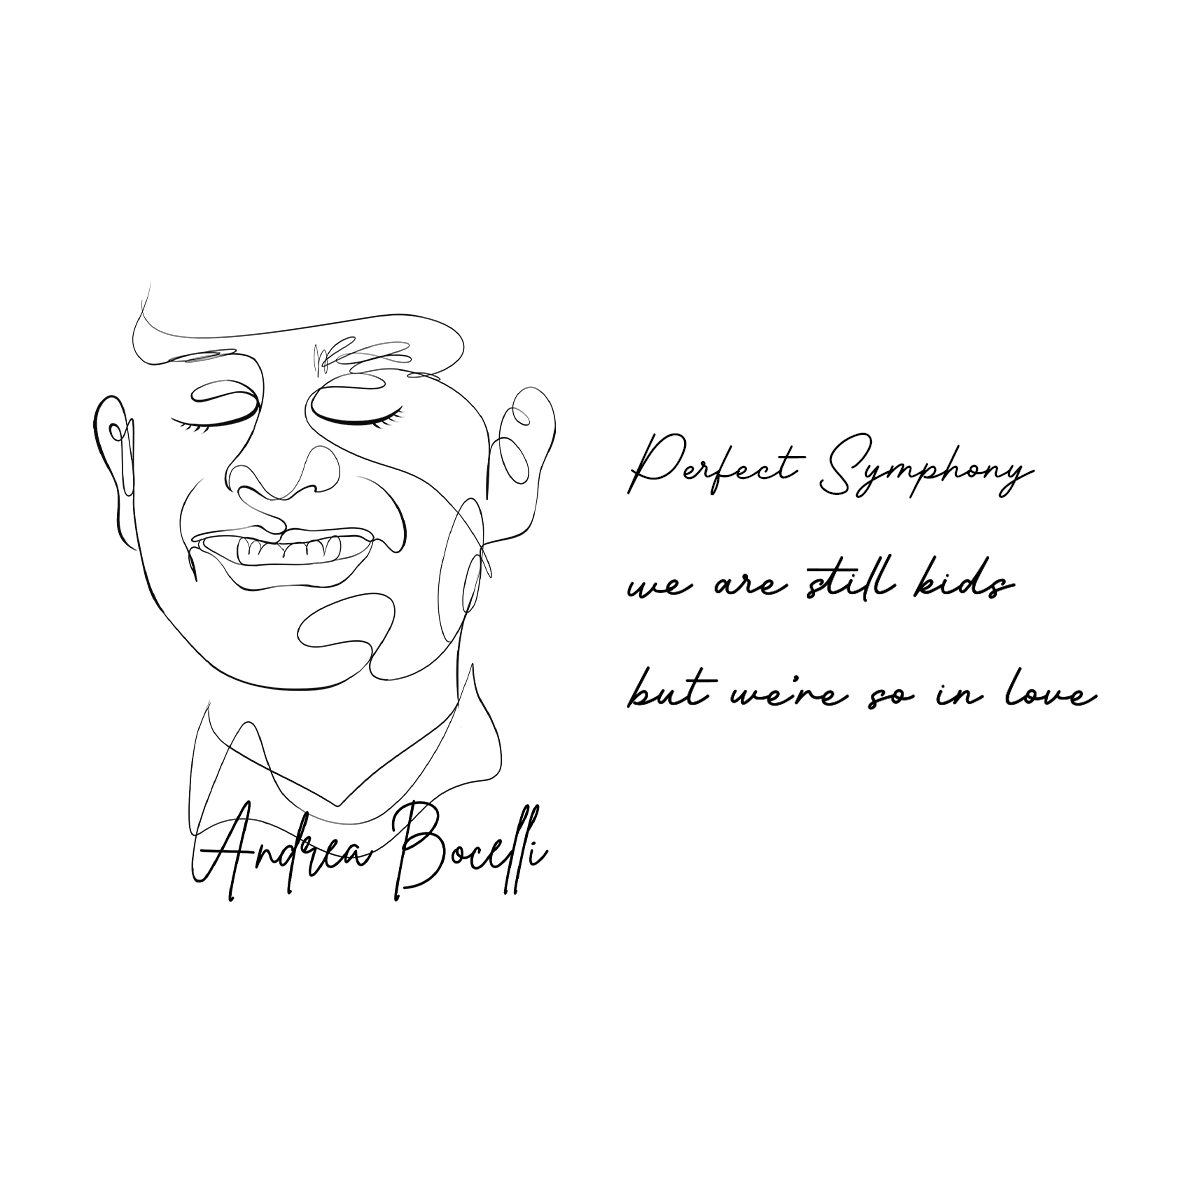 Perfect Symphony
we are still kids
but we're so in love
Andrea Bocelli